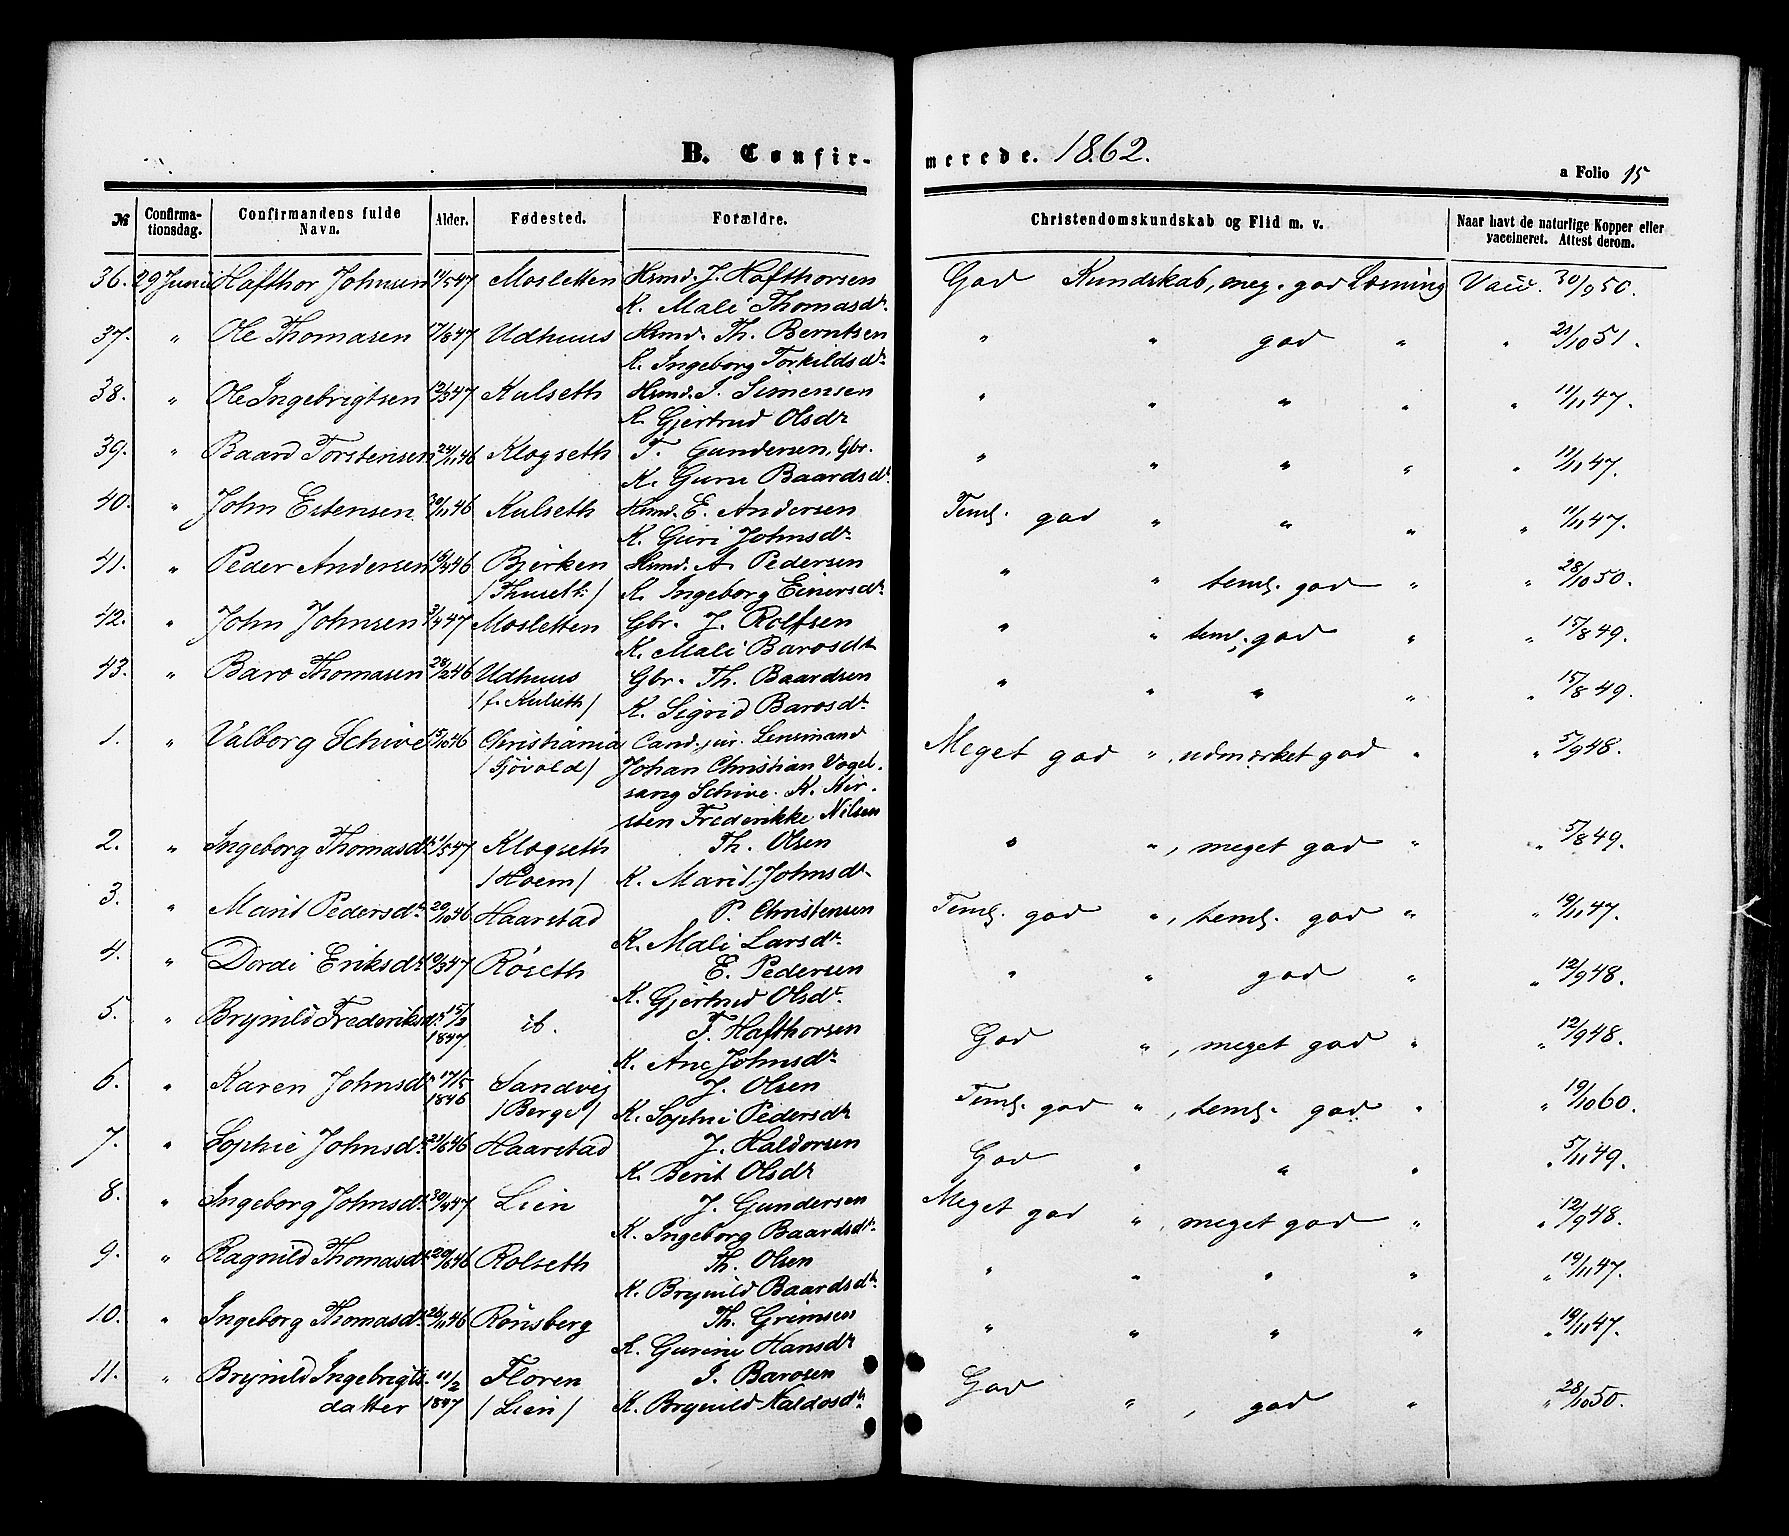 B. Confir-
merede. 1862.
a Folio 15
№ Confirma-tionsdag. Confirmandens fulde Navn. Alder. Fødested. Forældre. Christendomskundskab og Flid m. v. Naar havt de naturlige Kopper eller vaccineret. Attest derom.
36. 29 Juni Hafthor Johnsen 11/5 47 Mosletten Husmd. J. Hafthorsen God Kundskab, meg. god Læsning Vacc. 30/9 50.
K. Mali Thomasdr.
37. " Ole Thomasen 17/6 47 Udhuus Husmd. Th. Berntsen " " god " " 21/10 51.
K. Ingeborg Torkildsdr.
38. " Ole Ingebrigtsen 12/3 47 Kulseth Husmd. I. Simensen " " " " " 11/11 47.
K. Gjertrud Olsdr
39. " Baard Torstensen 24/11 46 Klogseth T. Gundersen, Gbr. " " " " " 12/11 47.
K. Guru Baardsdr.
40. " John Estensen 30/11 46 Kulseth Husmd. E. Andersen Teml. god " " " " 11/11 47.
K. Guri Johnsdr.
41. " Peder Andersen 46 Bjerken Husmd. A. Pedersen " " teml. god " " 28/10 50.
/Thuseth/ K. Ingeborg Einersdr.
42. " John Johnsen 3/4 47 Mosletten Gbr. J. Rolfsen " " teml. god " " 15/8 49.
K. Mali Barosdr
43. " Baro Thomasen 28/12 46 Udhuus Gbr. Th. Baardsen " " " " " 15/8 49.
/f. Kulseth/ K. Sigrid Barosdr.
1. " Valborg Schive 15/10 46 Christiania Cand. jur. Lensmand Meget god ", udmærket god " " 5/9 48.
/Fjøvold/ Johan Christian Vogel-
sang Schive. K. Kir-
sten Frederikke Nilsen
2. " Ingeborg Thomasdr. 1/5 47 Klogseth Th. Olsen " ", meget god " " 5/8 49.
/Hoem/ K. Marit Johnsdr.
3. " Marit Pedersdr. 20/10 46 Haarstad P. Christensen Teml. god ", teml. god " " 19/11 47.
K. Mali Larsdr.
4. " Dordi Eriksdr. 10/3 47 Røseth E. Pedersen " " god " " 12/9 48.
K. Gjertrud Olsdr.
5. " Brynild Frederiksdr. 15/2 1847 ib. F. Hafthorsen God ", meget god " " 12/9 48.
K. Ane Johnsdr.
6. " Karen Johnsdr. 17/5 1846 Sandvej J. Olsen Teml. god ", teml. god " " 19/10 60.
/Berge/ K. Sophie Pedersdr
7. " Sophie Johnsdr. 21/6 46 Haarstad J. Haldorsen God " " " " 5/11 49.
K. Berit Olsdr
8. " Ingeborg Johnsdr. 30/4 47 Lien J. Gundersen Meget god ", meget god " " 12/9 48.
K. Ingeborg Baardsdr.
9. " Ragnild Thomasdr. 20/6 46 Rolseth Th. Olsen " " " " " 19/11 47.
K. Brynild Baardsdr.
10. " Ingeborg Thomasdr. 26/11 46 Rønsberg Th. Grimsen " " " " " 19/11 47.
K. Gurine Hansdr
11. " Brynild Ingebrigts- 11/2 1847 Floren I. Barosen God ", god " " 28/10 50.
datter /Lien/ K. Brynild Haldosdr.